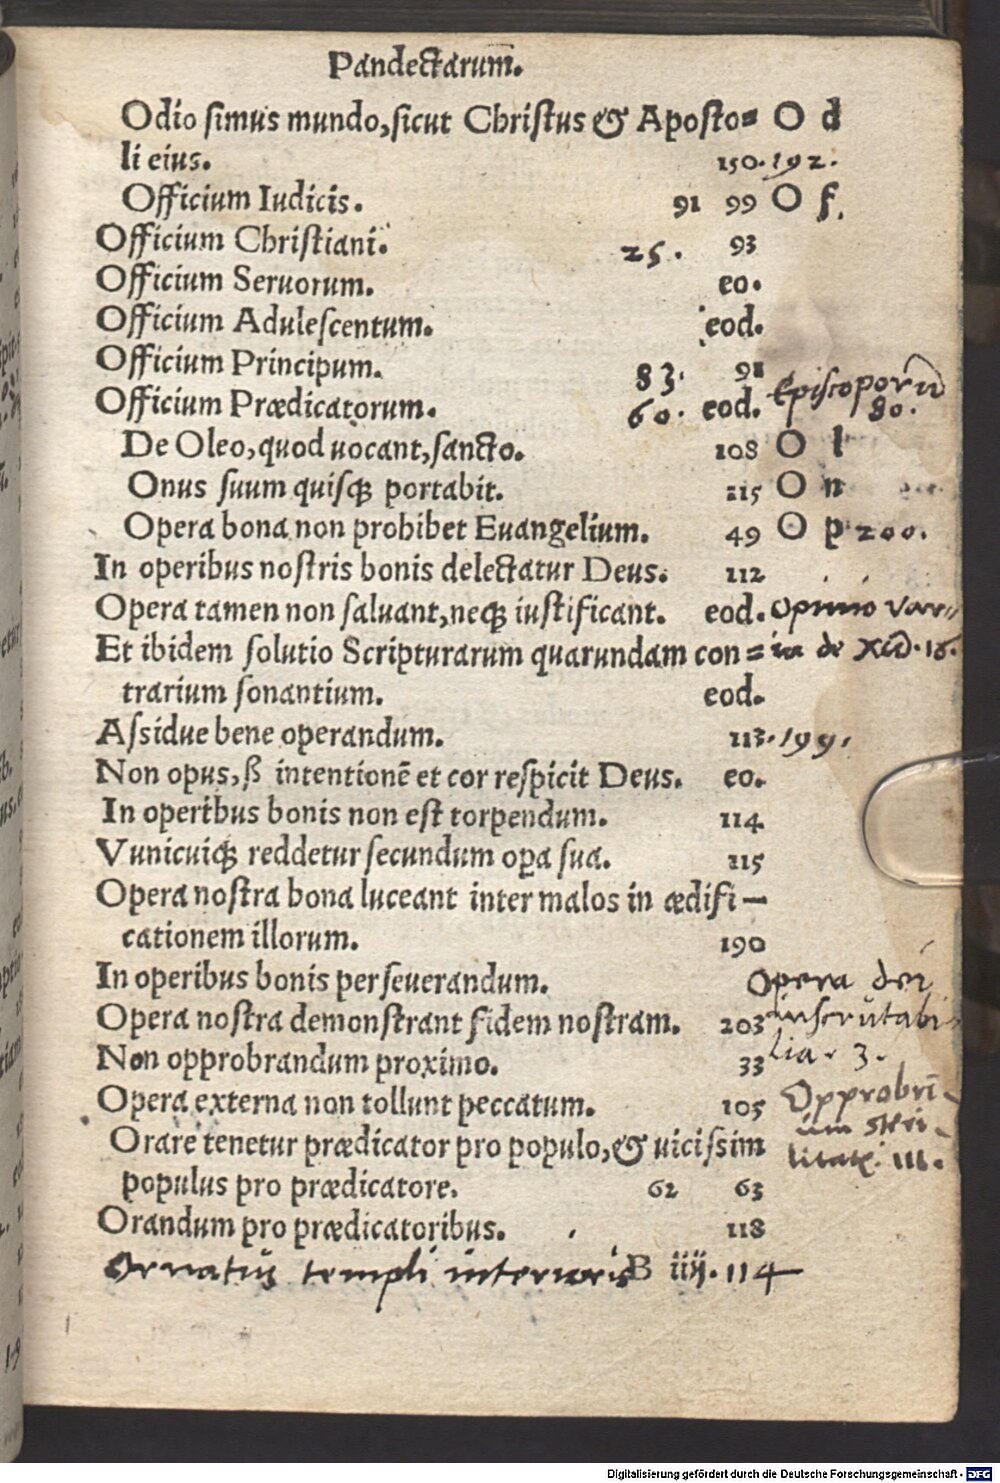 Pandectarum̄.
Odio simus mundo, sicut Christus & Aposto= O d
li eius. 150. 192.
Officium Iudicis. 91 99 O f.
Officium Christiani. 25. 93
Officium Seruorum. eo.
Officium Adulescentum. eod.
Officium Principum. 83. 91
Episcoporū 80.
Officium Prædicatorum. 60. eod.
De Oleo, quod uocant, sancto. 108 O l
Onus suum quisqꝫ portabit. 115 O n
Opera bona non prohibet Euangelium. 49 O p 200.
In operibus nostris bonis delectatur Deus. 112
Opera tamen non saluant, neqꝫ iustificant. eod. opinio var=
Et ibidem solutio Scripturarum quarundam con= ia de 16.
trarium sonantium. eod.
Assidue bene operandum. 113. 199.
Non opus, ß intentionē et cor respicit Deus. eo.
In operibus bonis non est torpendum. 114
Vunicuiqꝫ reddetur secundum oꝑa sua. 115
Opera nostra bona luceant inter malos in ædifi—
cationem illorum. 190
In operibus bonis perseuerandum. Opera dei
Opera nostra demonstrant fidem nostram. 203 inscrutabi
Non opprobrandum proximo. 33 lia. 3.
Opera externa non tollunt peccatum. 105 Opprobri=
um steri=
Orare tenetur prædicator pro populo, & uicissim litatis. 111.
populus pro prædicatore. 62 63
Orandum pro prædicatoribus. 118
Ornatus templi interioris B iiij. 114
Digitalisierung gefördert durch die Deutsche Forschungsgemeinschaft - DFG